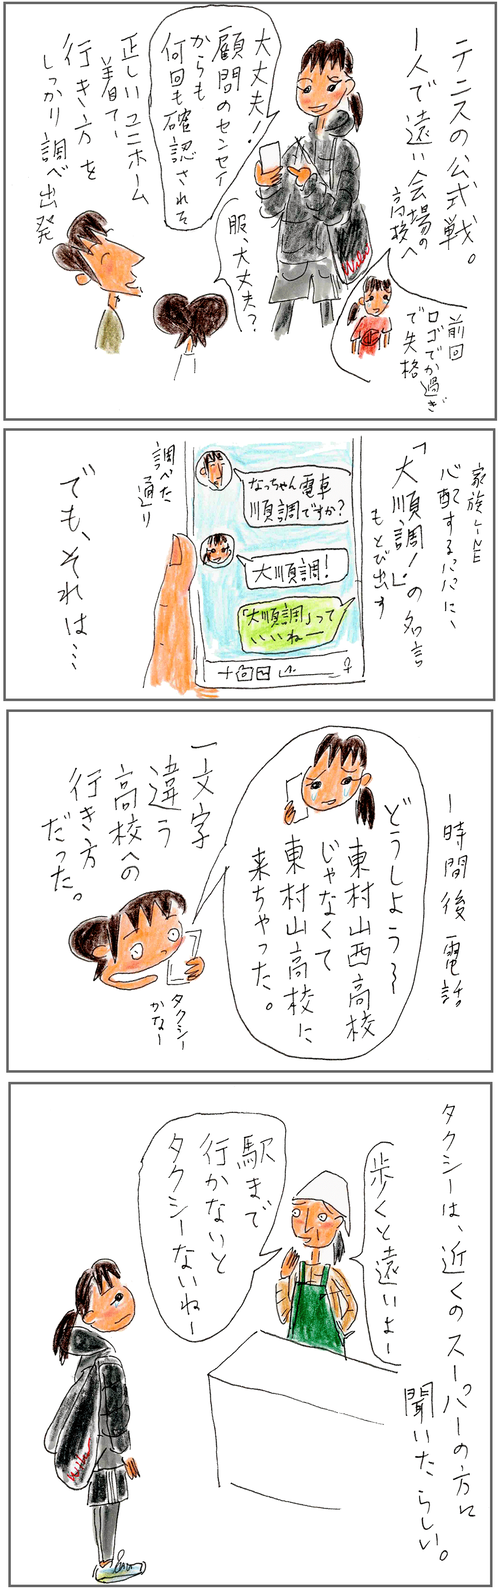 テニスの公式戦。
1人で遠い会場の
高校へ
前回
ロゴでか過ぎ
で失格
大丈夫!
顧問のセンセイ
からも
何回も確認された
服、大丈夫?
正しいユニホーム
着て、
行き方を
しっかり調べ出発
家族LINE
心配するパパに、
「大順調!」の名言
もとび出す
なっちゃん電車
順調ですか?
大順調!
「大順調」って
いいねー
調べた
通り
でも、それは…
一時間後電話。
どうしよう〜
東村山西高校
じゃなくて
東村山高校に
来ちゃった。
一文字
違う
高校への
行き方
だった。
タクシー
かなー
タクシーは、近くのスーパーの方に
聞いた、らしい。
歩くと遠いよー
駅まで
行かないと
タクシーないねー